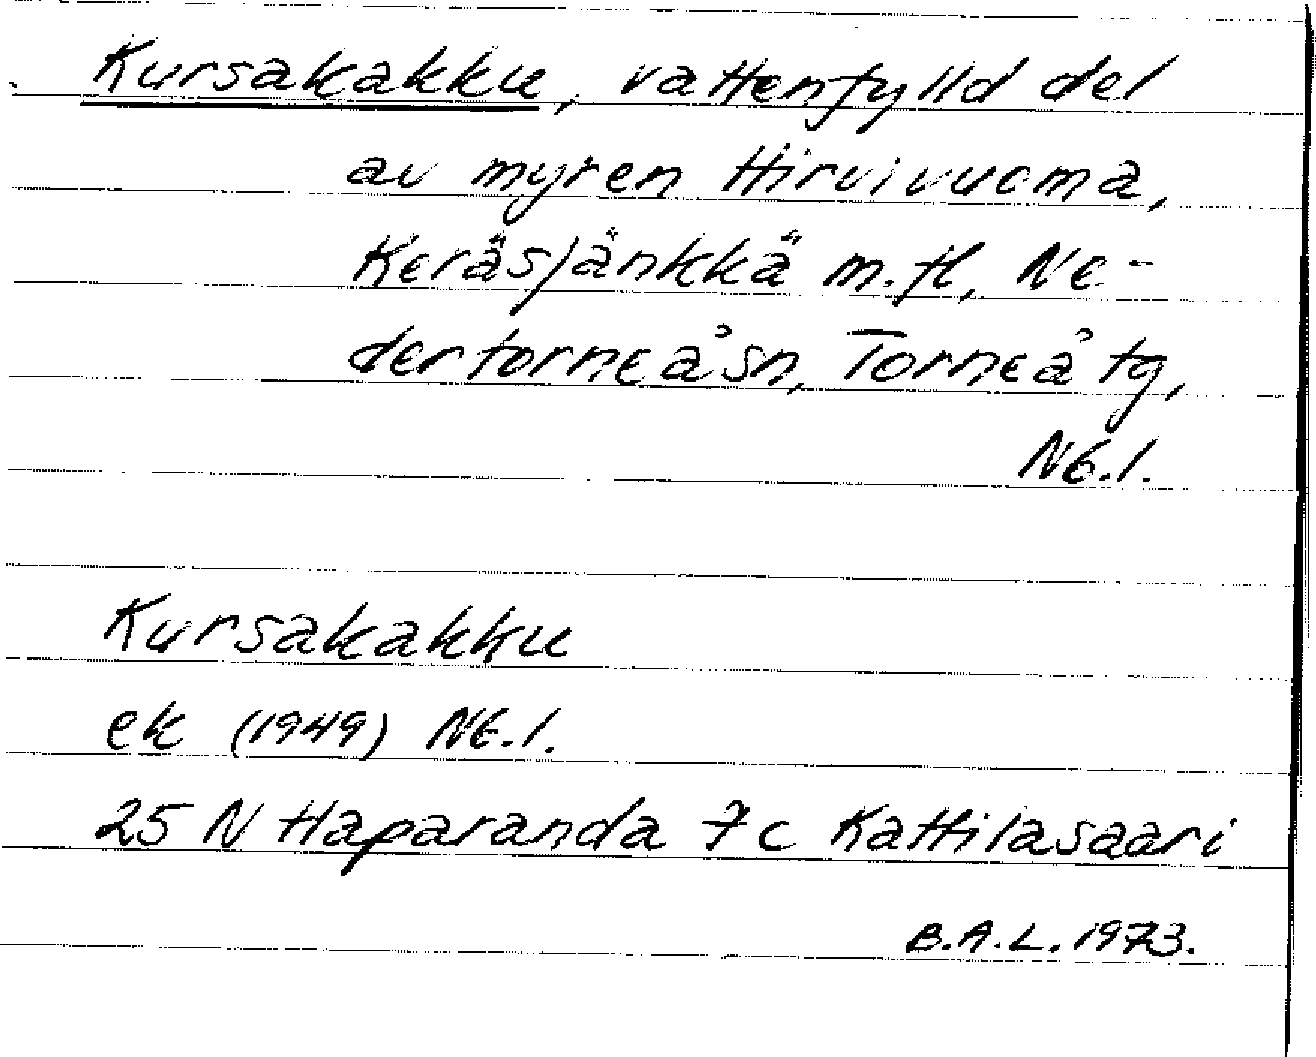 Kursakakku, vattenfylld del
av myren Hirvivuoma,
Keräsjänkkä m.fl, Ne-
dertorneå sn, Torneå tg,
Nb.l.
Kursakakku
ek (1949) Nb.l.
25 N Haparanda 7c Kattilasaari
B.A.L. 1973.